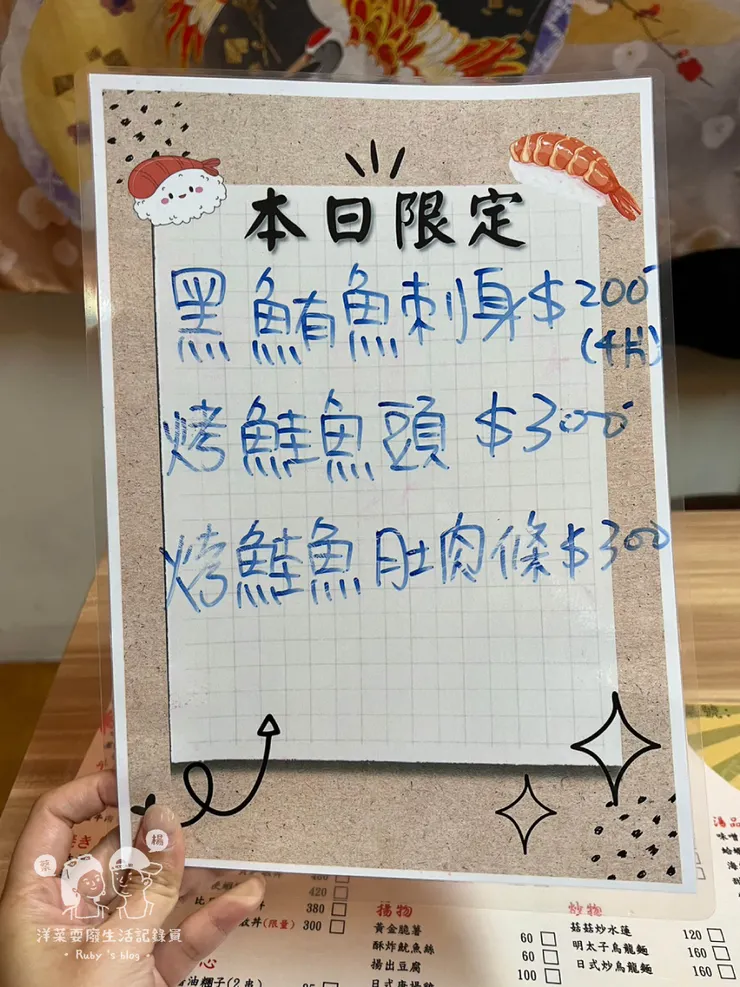 本日限定
黑鮪魚刺身$200
(4片)
烤鮭魚頭 $300
烤鮭魚肚肉條$300
420
380
(限量) 300
揚物
黃金脆薯 60
酥炸魷魚絲 60
揚出豆腐 100
炒物
菇菇炒水蓮 120
明太子烏龍麵 160
日式炒烏龍麵 160
湯品
味噌
洋菜耍廢生活記錄員
· Ruby 's blog ·